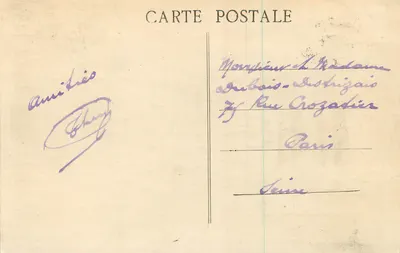 CARTE POSTALE
Amitiés
Monsieur et Madame
Dubois-Distrizais
75 Rue Crozatier
Paris
Seine